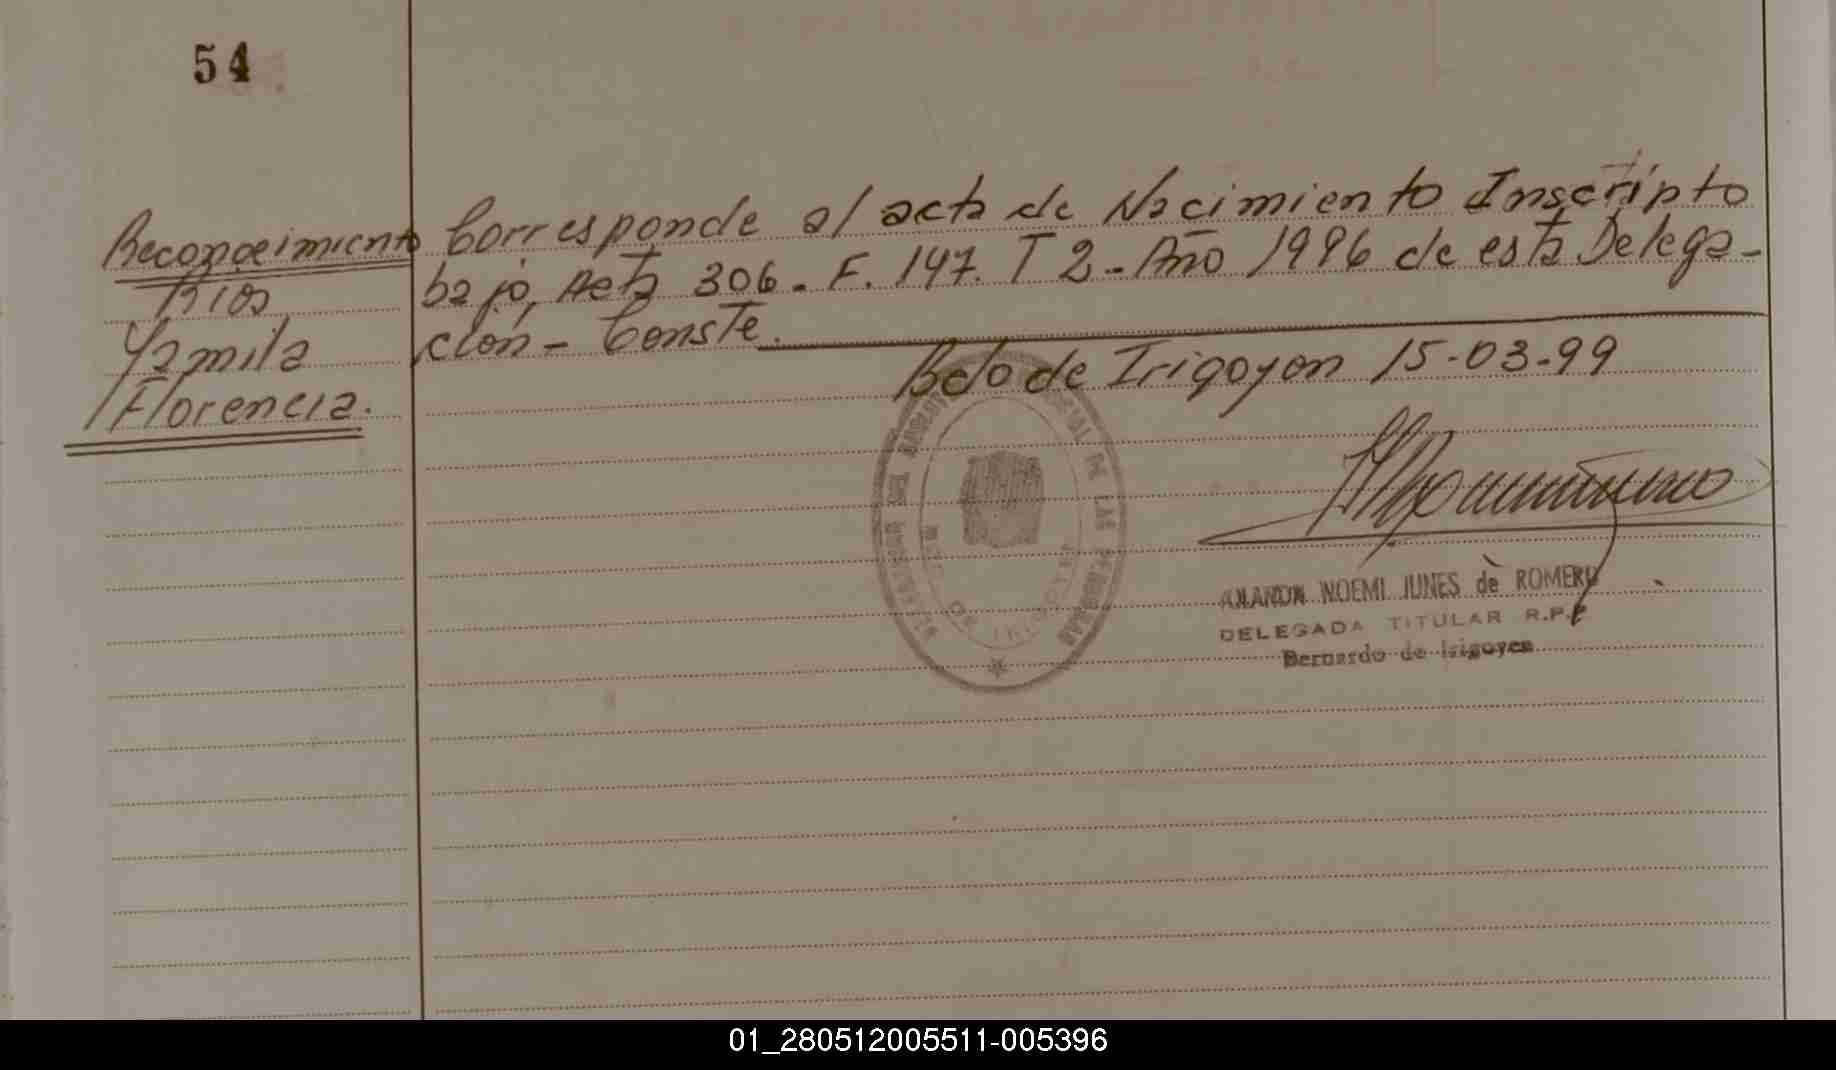 54
Reconocimiento
Rios
Yamila
Florencia.
Corresponde al acta de Nacimiento Inscripto
bajo, Acta 306. F. 147. T 2 - Año 1996 de esta Delega-
ción - Conste.
Bdo de Irigoyen 15-03-99
DE LAS PERSONAS
NOEMI JUNES de ROMERO
DELEGADA TITULAR R.P.P
Bernardo de Irigoyen
01_280512005511-005396